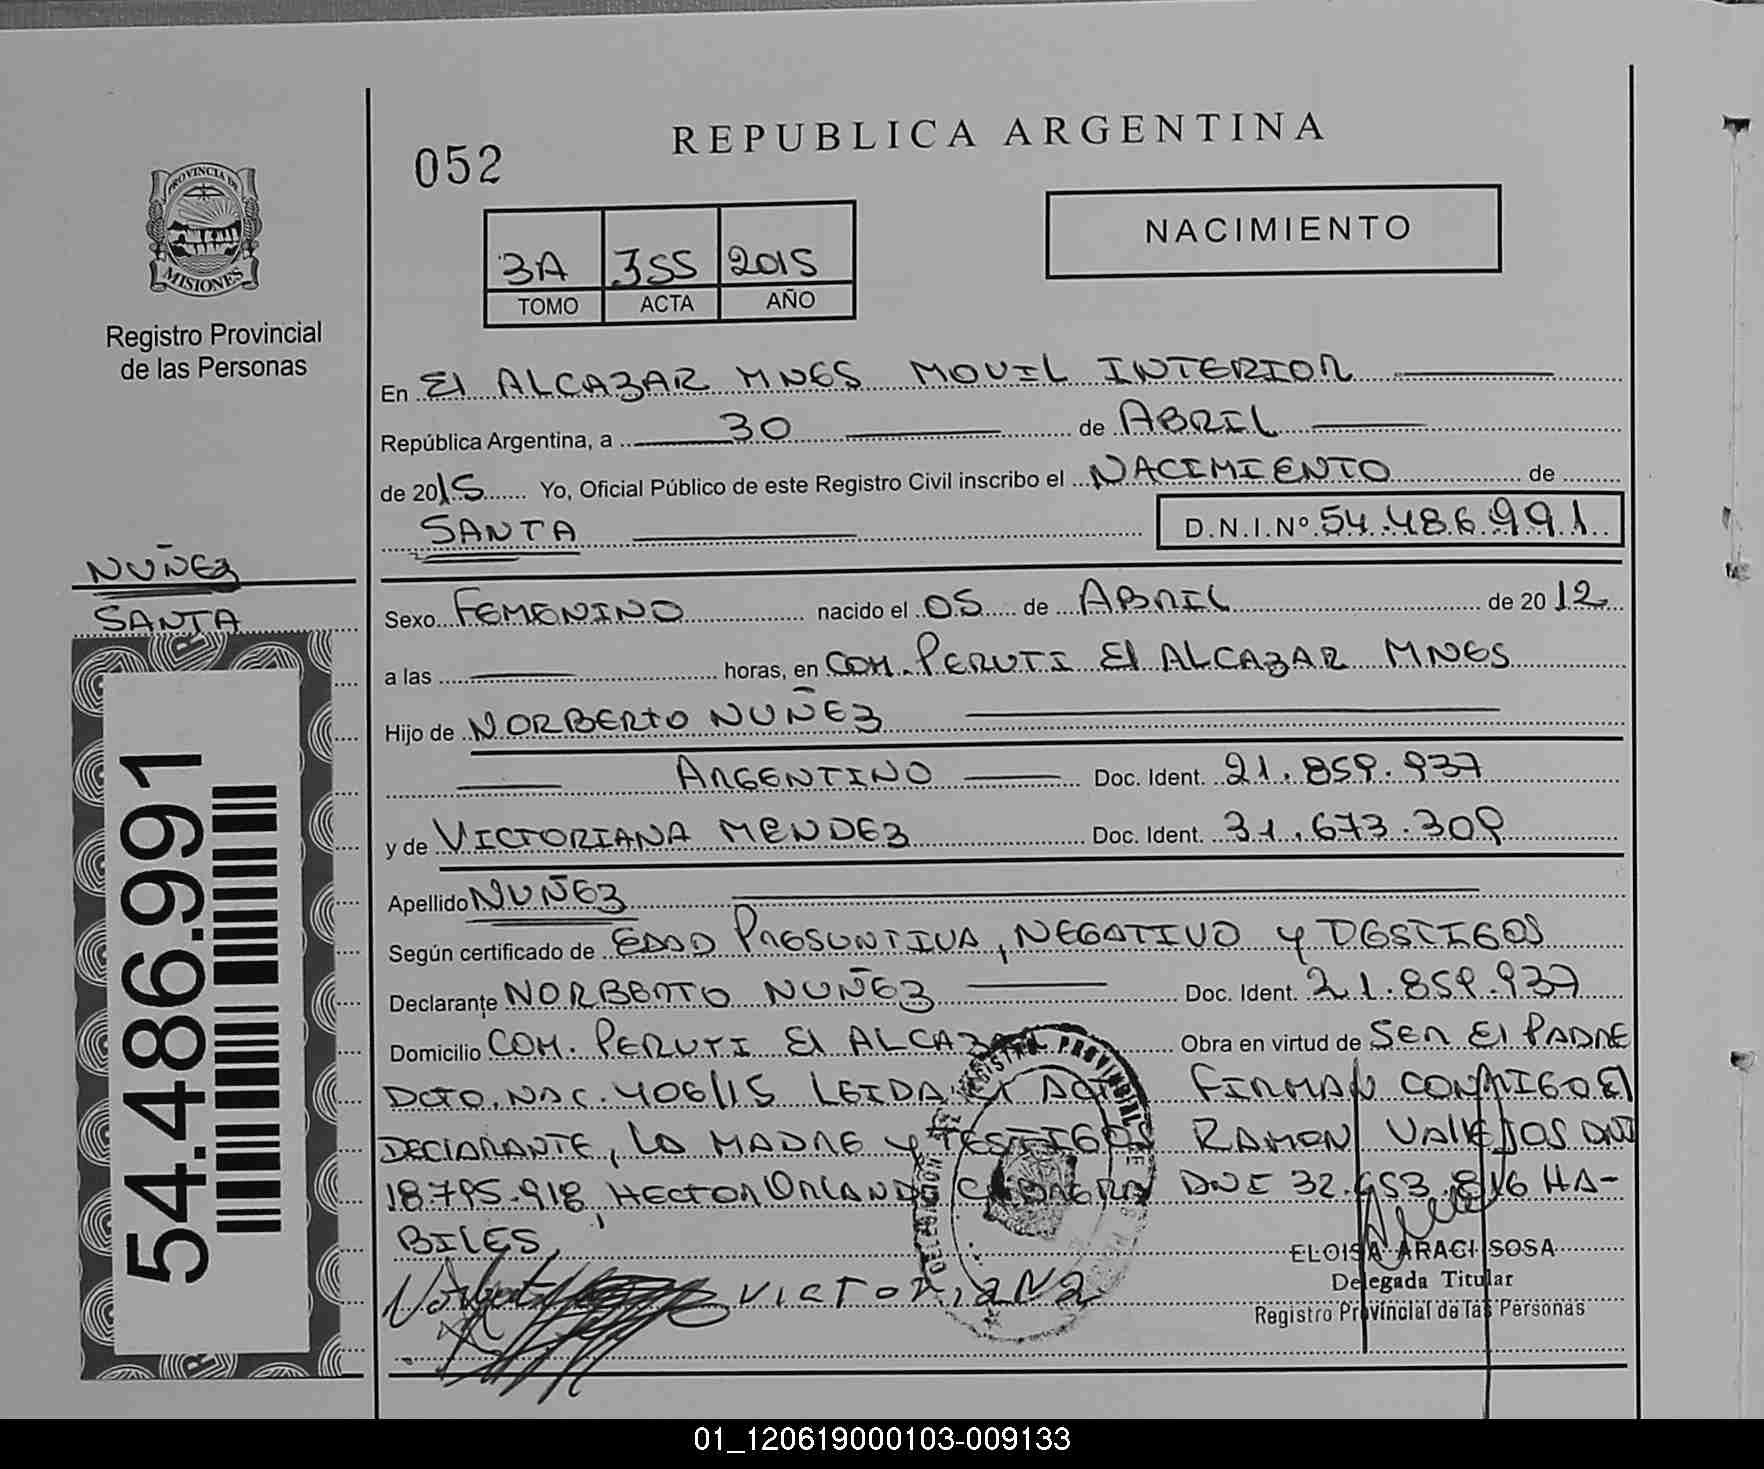 REPUBLICA ARGENTINA
052
NACIMIENTO
3A 355 2015
TOMO ACTA AÑO
PROVINCIA DE
MISIONES
Registro Provincial
de las Personas
En El ALCAZAR MNES MOVIL INTERIOR
República Argentina, a 30 de ABRIL
de 2015 Yo, Oficial Público de este Registro Civil inscribo el NACIMIENTO de
SANTA D.N.I.Nº 54.486.991
NUÑEZ
SANTA
54.486.991
Sexo FEMENINO nacido el 05 de ABRIL de 2012
a las horas, en COM. PERUTI El ALCAZAR MNES
Hijo de NORBERTO NUÑEZ
ARGENTINO Doc. Ident. 21.859.937
y de VICTORIANA MENDEZ Doc. Ident. 31.673.309
Apellido NUÑEZ
Según certificado de EDAD PRESUNTIVA, NEGATIVO Y TESTIGOS
Declarante NORBERTO NUÑEZ Doc. Ident. 21.859.937
Domicilio COM. PERUTI El ALCAZAR Obra en virtud de SER El PADRE
DCTO. NAC. 406/15 LEIDA El ACTA FIRMAN CONMIGO El
DECLARANTE, LA MADRE Y TESTIGOS RAMON VALLEJOS DNI
18.795.918, HECTOR ORLANDO DNI 32.653.816 HA-
BILES
Norberto VICTORIANA
ELOISA ARACI SOSA
Delegada Titular
Registro Provincial de las Personas
01_120619000103-009133